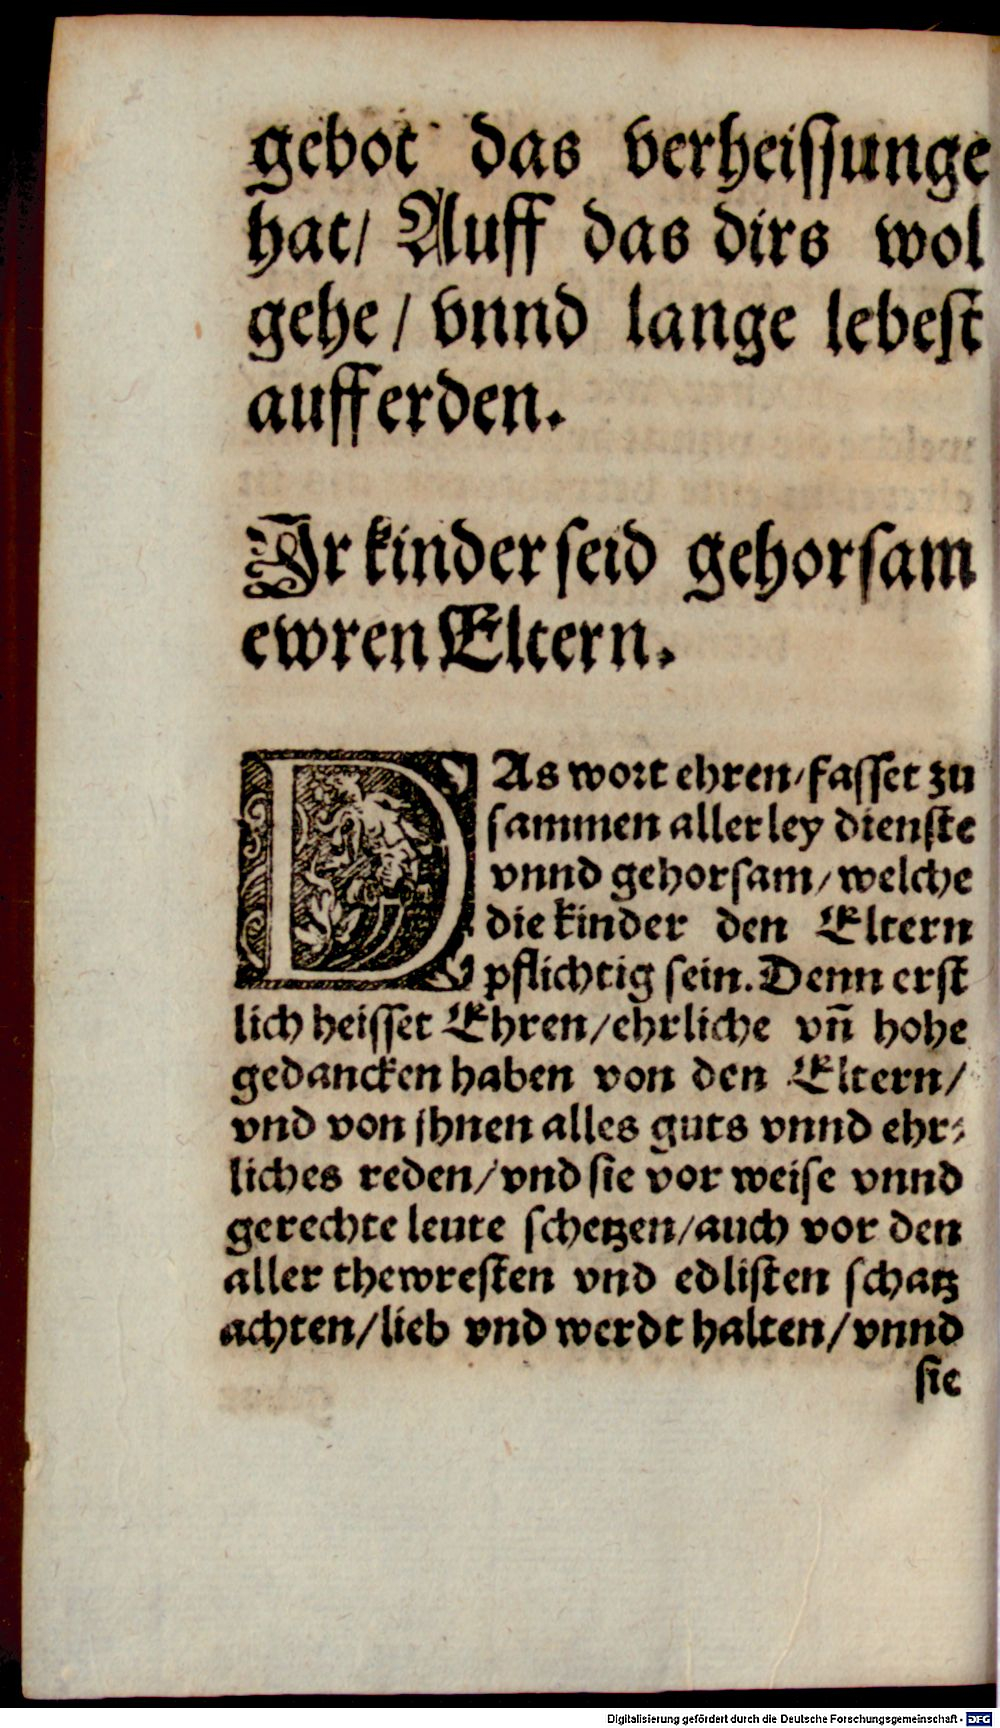 gebot das verheissunge
hat/ Auff das dirs wol
gehe / vnnd lange lebest
auff erden.
Ir kinder seid gehorsam
ewren Eltern.
DAs wort ehren/fasset zu
sammen allerley dienste
vnnd gehorsam/welche
die kinder den Eltern
pflichtig sein. Denn erst
lich heisset Ehren/ehrliche vñ hohe
gedancken haben von den Eltern/
vnd von jhnen alles guts vnnd ehr⸗
liches reden/vnd sie vor weise vnnd
gerechte leute schetzen/auch vor den
aller thewresten vnd edlisten schatz
achten/lieb vnd werdt halten/vnnd
sie
Digitalisierung gefördert durch die Deutsche Forschungsgemeinschaft - DFG